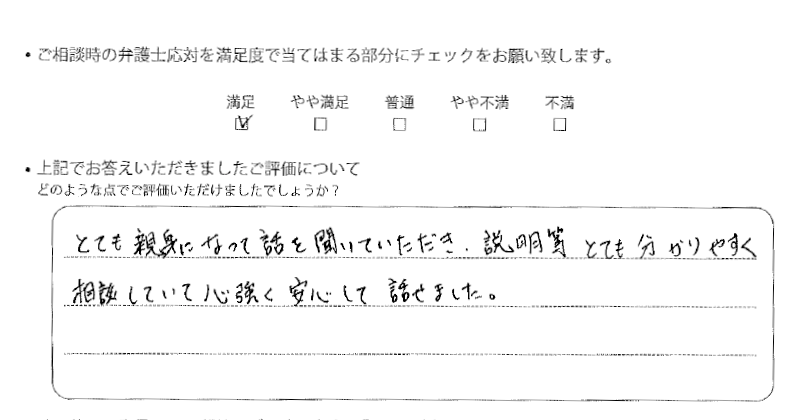 ・ご相談時の弁護士応対を満足度で当てはまる部分にチェックをお願い致します。
満足 やや満足 普通 やや不満 不満
☑ ☐ ☐ ☐ ☐
・上記でお答えいただきましたご評価について
どのような点でご評価いただけましたでしょうか？
とても親身になって話を聞いていただき、説明等とても分かりやすく
相談していて心強く安心して話せました。